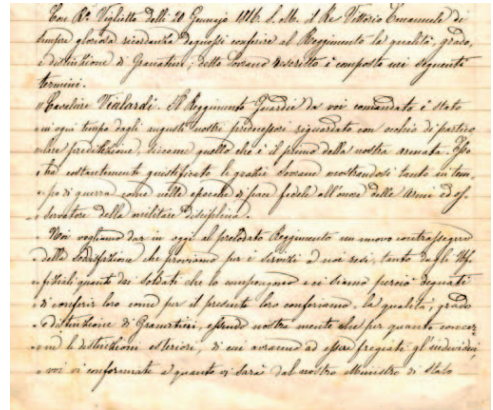 Con R.º Viglietto delli 20 Gennajo 1816 S. M. il Re Vittorio Emanuele di
sempre gloriosa ricordanza degnossi conferire al Reggimento la qualità, grado,
e distinzione di Granatieri; detta Sovrana è composta nei seguenti
termini.
"Cavaliere Vialardi. Il Reggimento Guardie da voi comandato è stato
"in ogni tempo dagli augusti nostri predecessori riguardato con occhio di partico
"lare predilezione, siccome quello che è il primo della nostra armata. Esso
"ha costantemente giustificato le grazie Sovrane mostrandosi tanto in tem
"po di guerra, come nelle epoche di pace fedele all'onore delle Armi ed os
"servatore della militare disciplina.
"Noi vogliamo dar in oggi al prelodato Reggimento un nuovo contrassegno
"della soddisfazione che proviamo per i servizi a noi resi, tanto dagli Uf
"fiziali quanto dai Soldati che lo compongono e ci siamo perciò degnati
"di conferir loro come per il presente loro conferiamo, la qualità, grado
"e distinzione di Granatieri, essendo nostra mente che per quanto concer
"ne le distinzioni esteriori, di cui avranno ad esser fregiati gl'individui
"voi vi conformiate a quanto vi sarà dal nostro Ministro di Stato